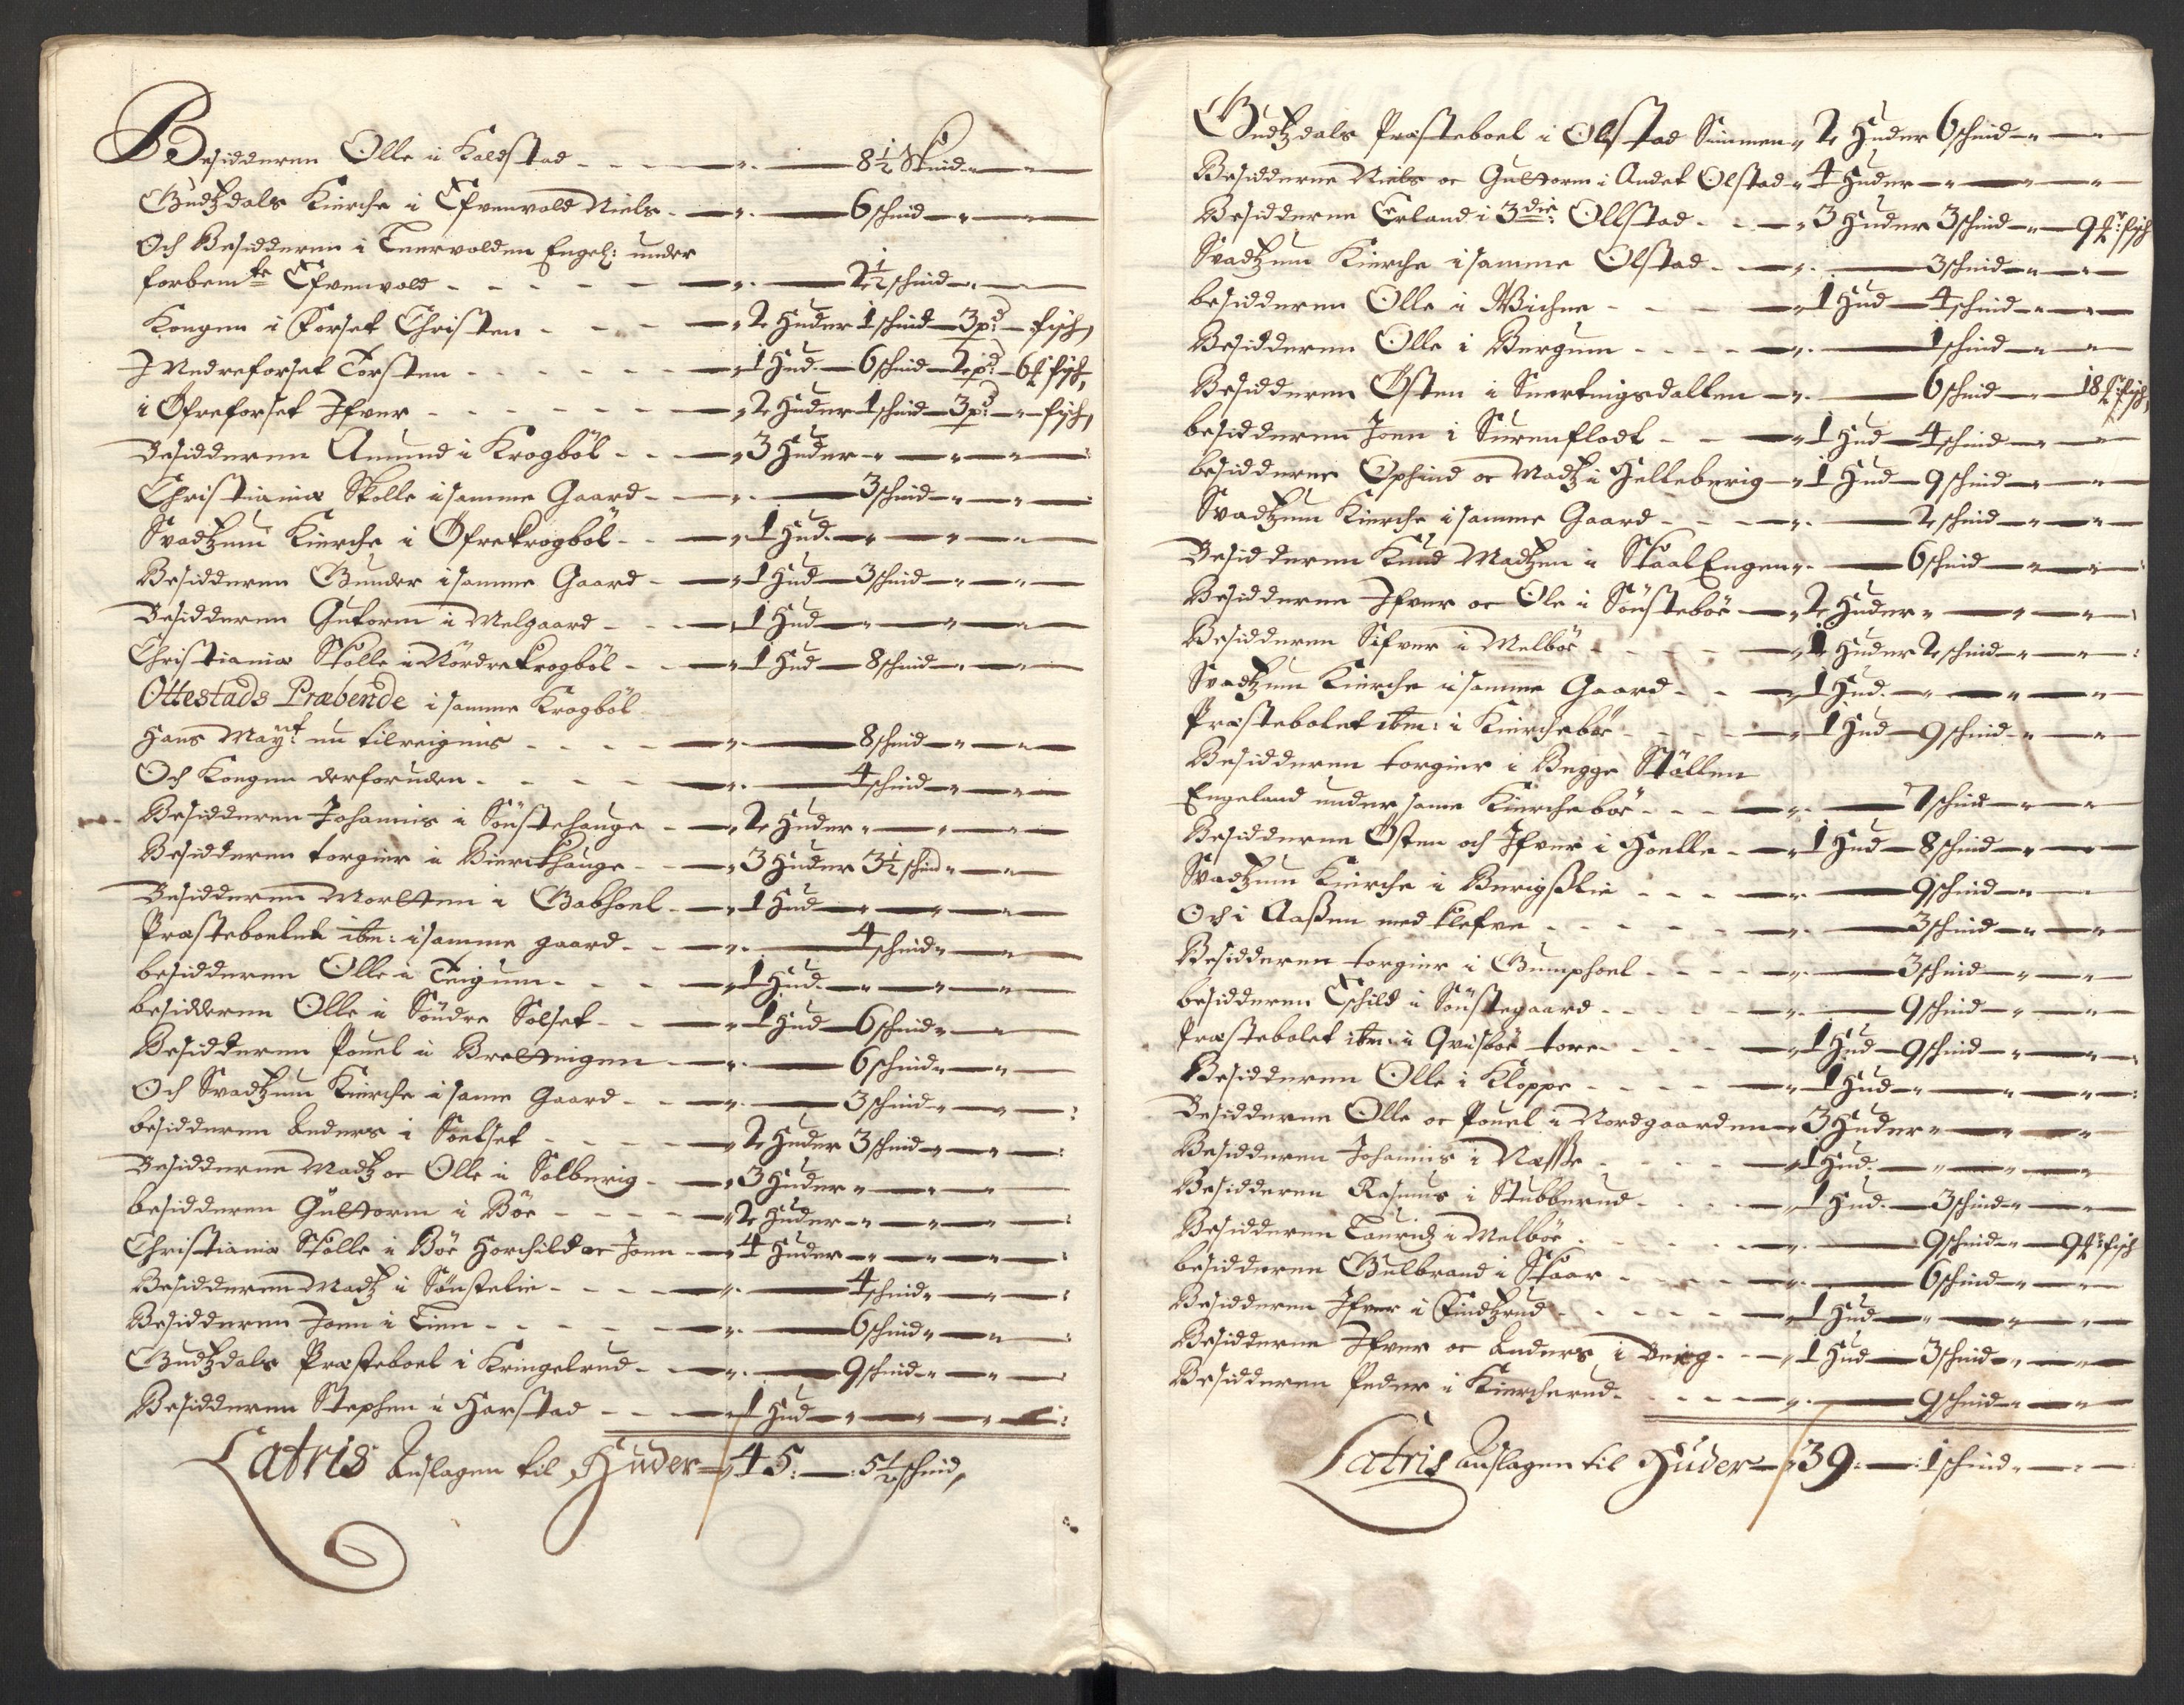 Besidderen Olle i Kaldstad - - - - " - 8½ Skind - " -
Gudtzdals Kierche i Efvenvold Niels - " - 6 schind - " -
Och Besidderen i Enervolden Engel: under
forbemte Efvenvold - - - - - " - 2½ schind - " -
Kongen i Forset Christen - - - - " 2 Huder 1 schind - 3 pd: - fisch,
I Nedreforset Torsten - - - - - " 1 Hud - 6 schind - 2 pd: - 6 ℔ fisch,
i Øfreforset Ifver - - - - - " 2 Huder 1 schind - 3 pd: - " fisch,
Besidderen Amund i Krogböl - - - " 3 Huder - " - " -
Christianiæ Skolle i samme Gaard - - " - 3 schind - " -
Svadtzum Kierche i Øfrekrogböl - - " 1 Hud - " - " -
Besidderen Gunder i samme Gaard - - " 1 Hud - 3 schind - " -
Besidderen Gutorm i Melgaard - - - " 1 Hud - " - " -
Christianiæ Skolle i Nördrekrogböl - - " 1 Hud - 8 schind - " -
Ottestads Præbende i samme Krogböl
Hans Mayst: nu tilreignis - - - - " - 8 schind - " -
Och Kongen derforuden - - - - " - 4 schind - " -
Besidderen Johannis i Sönstehauge - - " 2 Huder - " - " -
Besidderen torgier i Bierikhauge - - " 3 Huder 3½ schind " -
Besidderen Morthen i Gabhoel - - " 1 Hud - " - " -
Præsteboelet ibm: i samme gaard - - " - 4 schind " -
besidderen Olle i Teigum - - - - " 1 Hud - " - " -
besidderen Olle i Söndre Solset - - " 1 Hud - 6 schind " -
Besidderen Pouel i Brettingen - - " - 6 schind " -
Och Svadtzum Kierche i same Gaard - - " - 3 schind " - :
besidderen Anders i Soelset - - - - " 2 Huder 3 schind - " - :
Besidderne Madtz oc Olle i Solberig - - " 3 Huder " - " -
besidderen Guttorm i Böe - - - - " 2 Huder - " - " - :
Christianiæ Skolle i Böe Horchild oc Joen - " 4 Huder - " - " - :
Besidderen Madtz i Sönstelie - - - - " - 4 schind " - :
Besidderen Joen i Lien - - - - - " - 6 schind " - :
Gudtzdals Præsteboel i Kringelrud - - " - 9 schind - " - :
Besidderen Stephen i Harstad - - - " 1 Hud - " - " - :
Latris Anslagen til Huder - " 45: - : 5½ schind,
Gudtzdals Præsteboel i Olstad Simmen " 2 Huder 6 schind - " -
Besidderne Niels oc Guttorm i Andet Olstad " 4 Huder - " - " -
Besidderne Erland i 3die: Ollstad - - " 3 Huder 3 schind - " - 9 ℔: fisch
Svadtzum Kierche i samme Olstad - - " - 3 schind - " -
besidderen Olle i Wichne - - - - " 1 Hud - 4 schind - " -
Besidderen Olle i Bergum - - - - " - 1 schind - " -
Besidderen Østen i Snertingsdallen - " - 6 schind - " - 18 ℔: fisch,
besidderen Joen i Surenflodt - - - " 1 Hud - 4 schind - " -
besidderne Ophind oc Madtz i Helleberig - " 1 Hud - 9 schind - " -
Svadtzum Kierche i samme Gaard - - - " - 2 schind - " -
Besidderen Knud Madtzen i Skaal Engen " - 6 schind - " - :
Besidderne Ifver oc Ole i Sönsteböe - " 2 Huder " - " - :
Besidderen Sifver i Melböe - - - - " 2 Huder 2 schind - " - :
Svadtzum Kierche i samme Gaard - - " 1 Hud - " - " -
Præstebolet ibm: i Kiercheböe - - - - " 1 Hud - 9 schind - " -
Besidderen torgier i Begge Stöllen
Engeland under same Kiercheböe - - - " - 7 schind - " -
Besidderne Østen och Ifver i Hoelle - - " 1 Hud - 8 schind - " -
Svadtzum Kierche i Berigßlie - - - - " - 9 schind - " -
Och i Aaßen med Klefve - - - - - " - 3 schind - " -
Besidderen torgier i Gumphoel - - - - " - 3 schind - " -
besidderen Eschild i Sönstegaard - - - - " - 9 schind - " -
Præstebolet ibm: i Qvisböe tore - - - - " 1 Hud - 9 schind - " - :
Besidderen Olle i Kloppe - - - - " 1 Hud - " - " - :
Besidderne Olle oc Pouel i Nordgaarden " 3 Huder " - " -
Besidderen Johannis i Næsse - - - - " 1 Hud - " - " -
Besidderen Rasmus i Stubberud - - - " 1 Hud - 3 schind - " -
Besidderen Lauridz i Melböe - - - - " - 9 schind - " - 9 ℔: fisch
besidderen Gulbrand i Skaar - - - - " - 6 schind - " -
Besidderen Ifver i Findtzrud - - - - " 1 Hud - " - " -
Besidderne Ifver oc Anders i Berg - - " 1 Hud - 3 schind - " -
Besidderen Peder i Kiercherud - - - - " - 9 schind - " -
Latris anslagen til Huder - " 39: - : 1 schind - " -